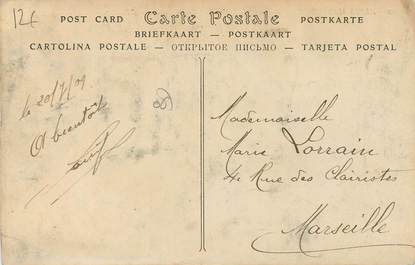 12€
POST CARD Carte Postale POSTKARTE
BRIEFKAART — POSTKAART
CARTOLINA POSTALE — ОТКРЫТОЕ ПИСЬМО — TARJETA POSTAL
le 20/7/09
A bientôt
Mademoiselle
Marie Lorrain
4 Rue des Clairistes
Marseille